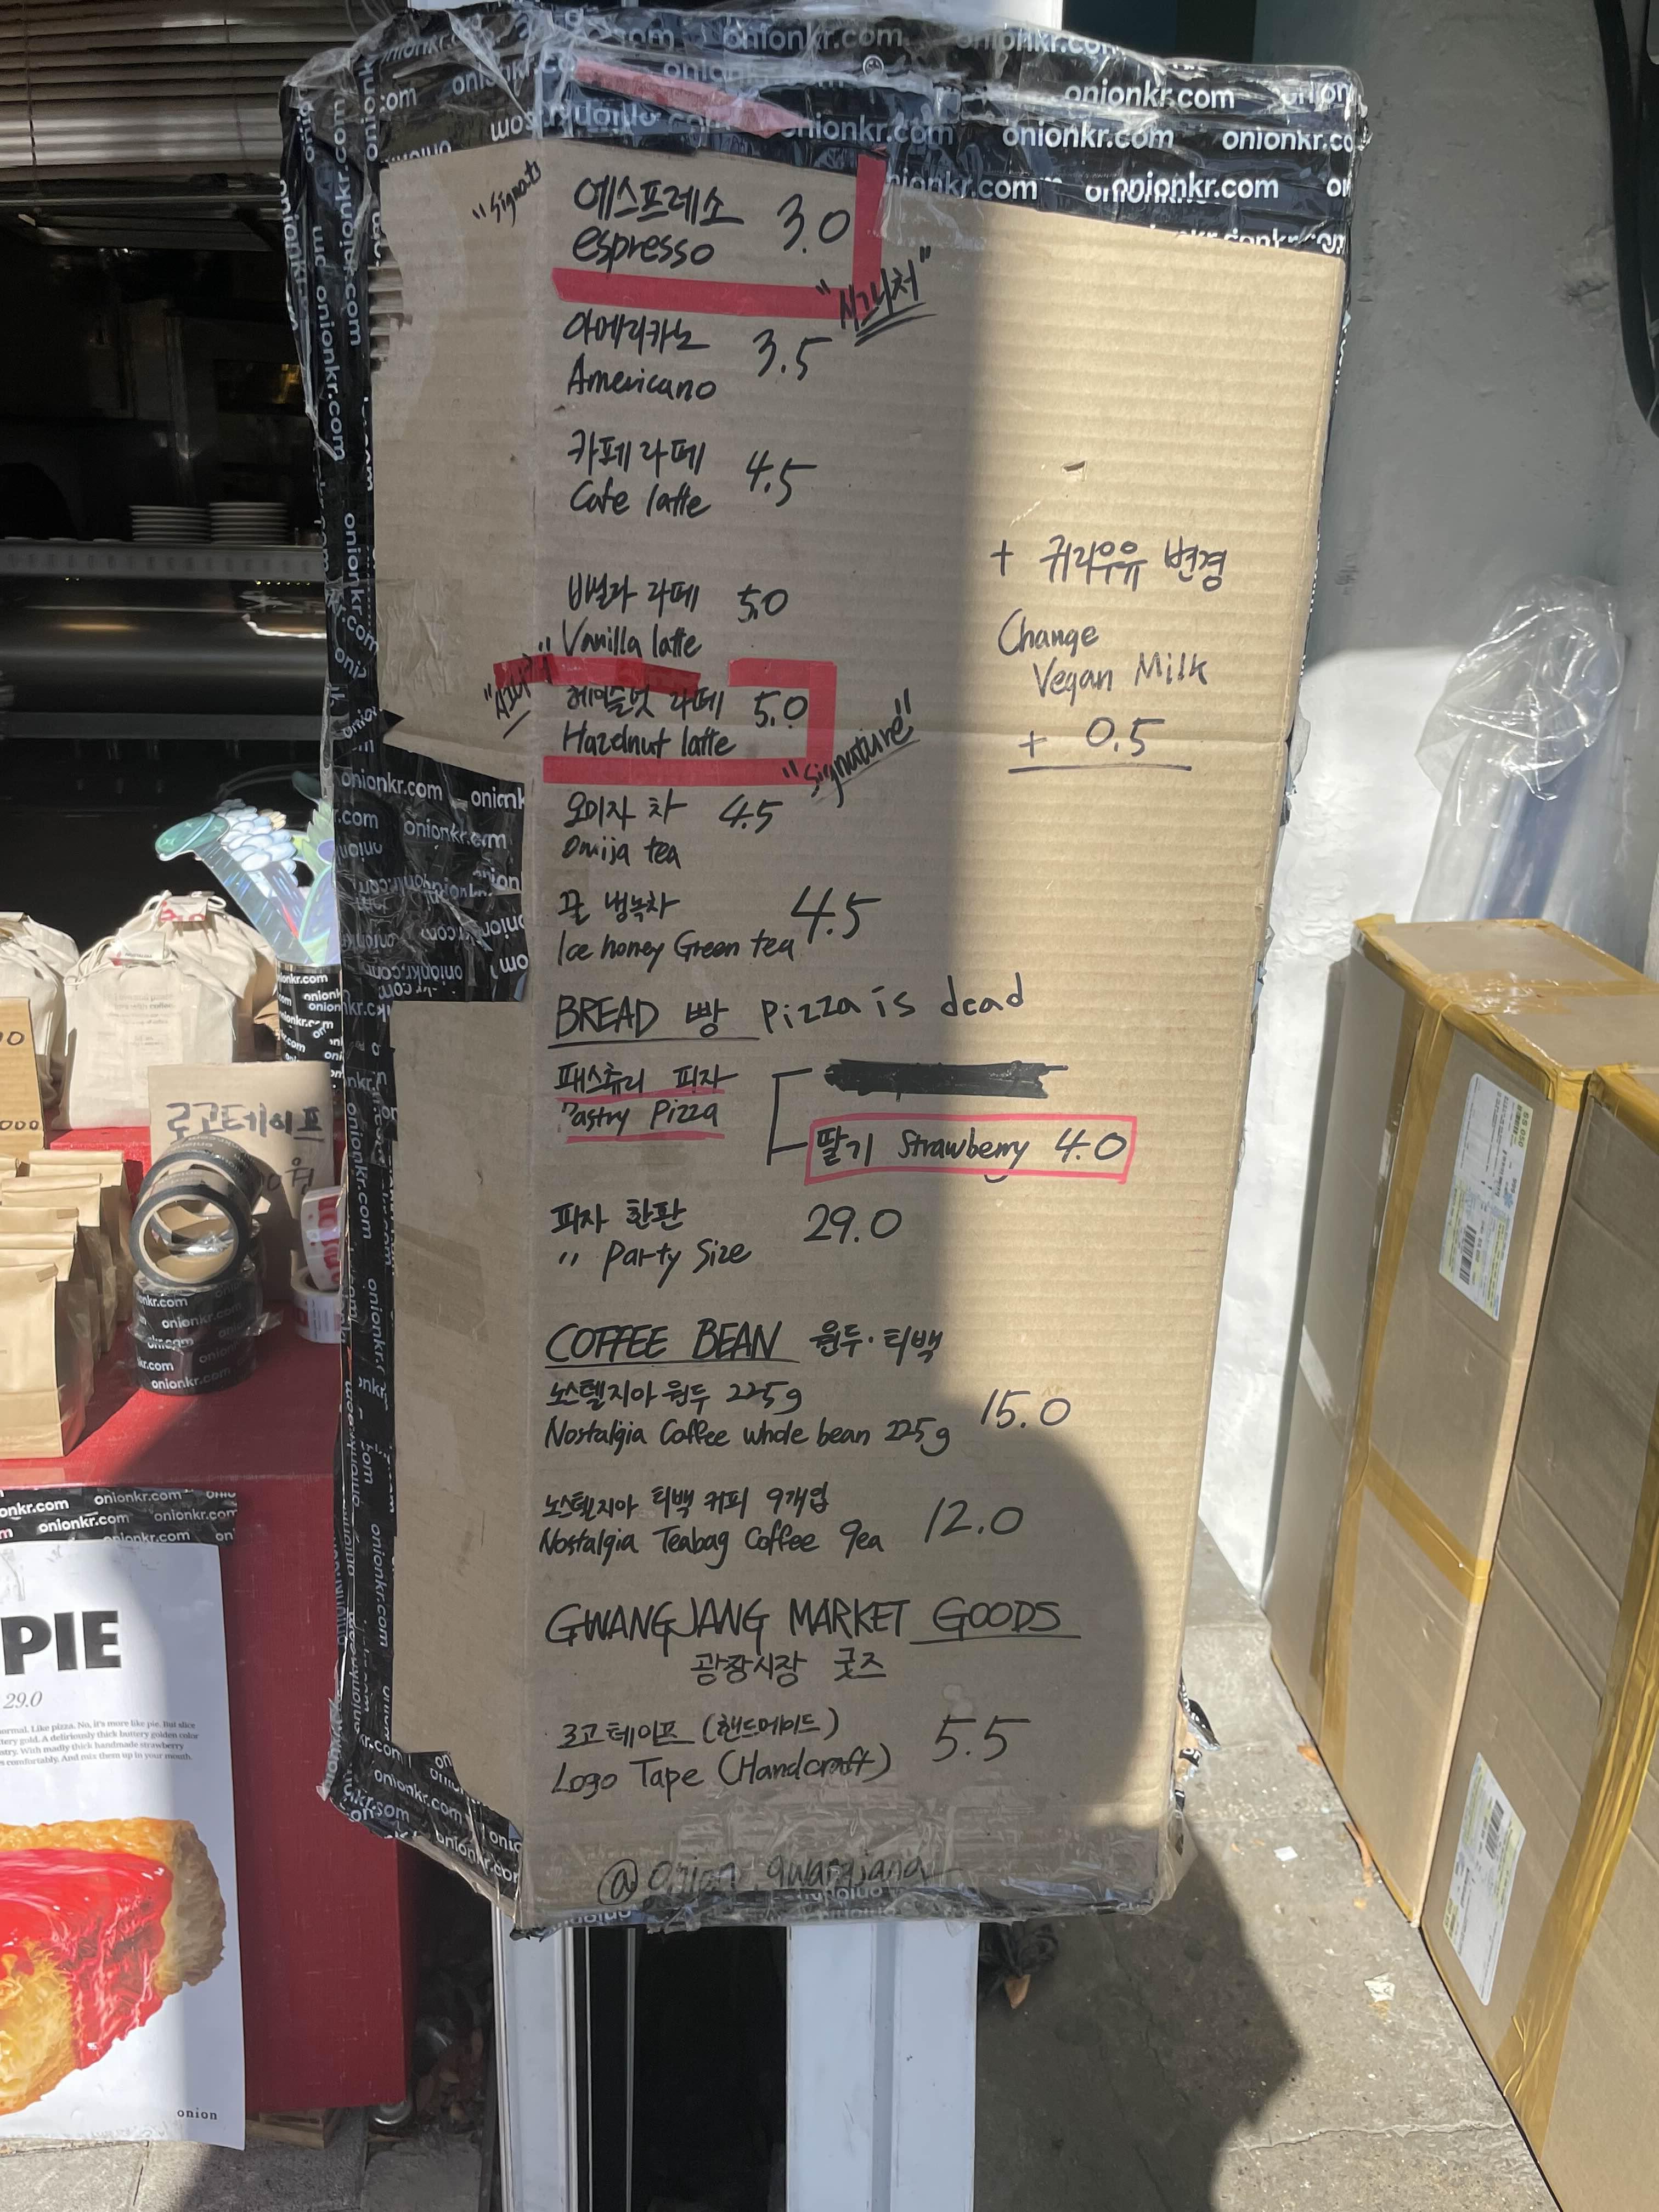 onionkr.com
"signature"
에스프레소 3.0
espresso
"시그니처"
아메리카노 3.5
Americano
카페라떼 4.5
Cafe latte
바닐라 라떼 5.0
Vanilla latte
헤이즐넛 라떼 5.0
Hazelnut latte
"signature"
+ 귀리우유 변경
Change
Vegan Milk
+ 0.5
오미자 차 4.5
Omija tea
꿀 냉녹차 4.5
Ice honey Green tea
BREAD 빵 Pizza is dead
패스츄리 피자
Pastry Pizza
딸기 Strawberry 4.0
피자 한판 29.0
" Party Size
COFFEE BEAN 원두·티백
노스텔지아 원두 225g 15.0
Nostalgia Coffee whole bean 225g
노스텔지아 티백 커피 9개입 12.0
Nostalgia Teabag Coffee 9ea
GWANGJANG MARKET GOODS
광장시장 굿즈
로고 테이프 (핸드메이드) 5.5
Logo Tape (Handcraft)
@onion_gwangjang
로고테이프
PIE
29.0
onion